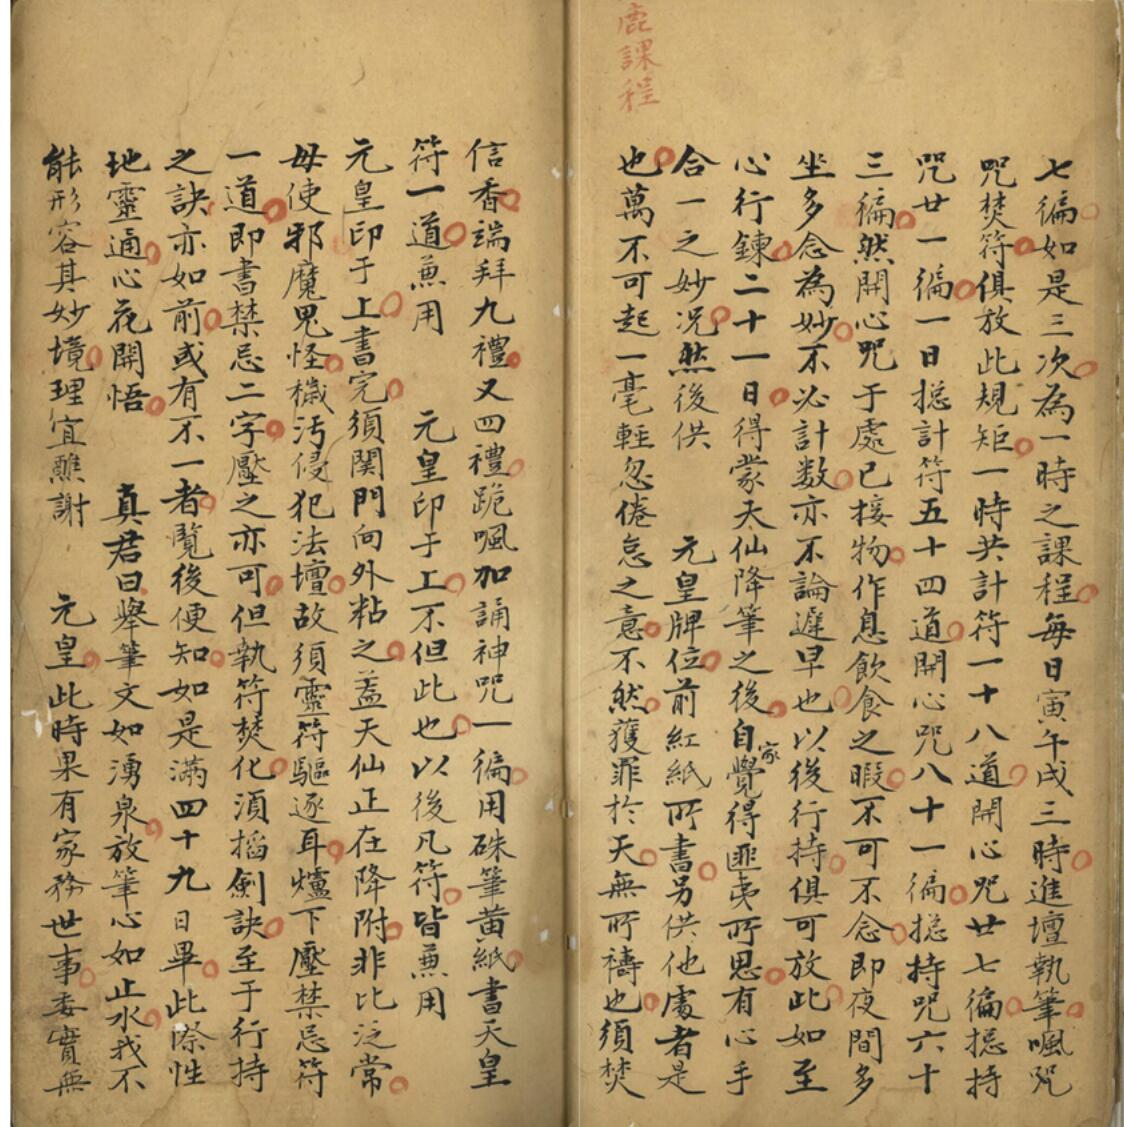 鹿課程
七徧如是三次為一時之課程每日寅午戌三時進壇執筆唵咒
咒焚符俱放此規矩一時共計符一十八道開心咒廿七徧揔持
咒廿一徧一日揔計符五十四道開心咒八十一徧揔持咒六十
三徧然開心咒于處已接物作息飲食之暇不可不念即夜間多
坐多念為妙不必計数亦不論遲早也以後行持俱可放此如至
心行鍊二十一日得蒙天仙降筆之後自覺得匪夷所思有心手
家
合一之妙况然後供 元皇牌位前紅紙所書另供他處者是
也萬不可起一毫輕忽倦怠之意不然獲罪於天無所禱也須焚
信香端拜九禮又四禮跪唵加誦神咒一徧用硃筆黄紙書天皇
符一道兼用 元皇印于上不但此也以後凡符皆兼用
元皇印于上書完須関門向外粘之盖天仙正在降附非比泛常
毋使邪魔鬼怪穢汚侵犯法壇故須靈符驅逐耳爐下壓禁忌符
一道即書禁忌二字壓之亦可但執符焚化湏搯劍訣至于行持
之訣亦如前或有不一者覧後便知如是滿四十九日畢此際性
地靈通心花開悟 真君曰舉筆文如湧泉放筆心如止水我不
能形容其妙境理宜醮謝 元皇此時果有家務世事委實無